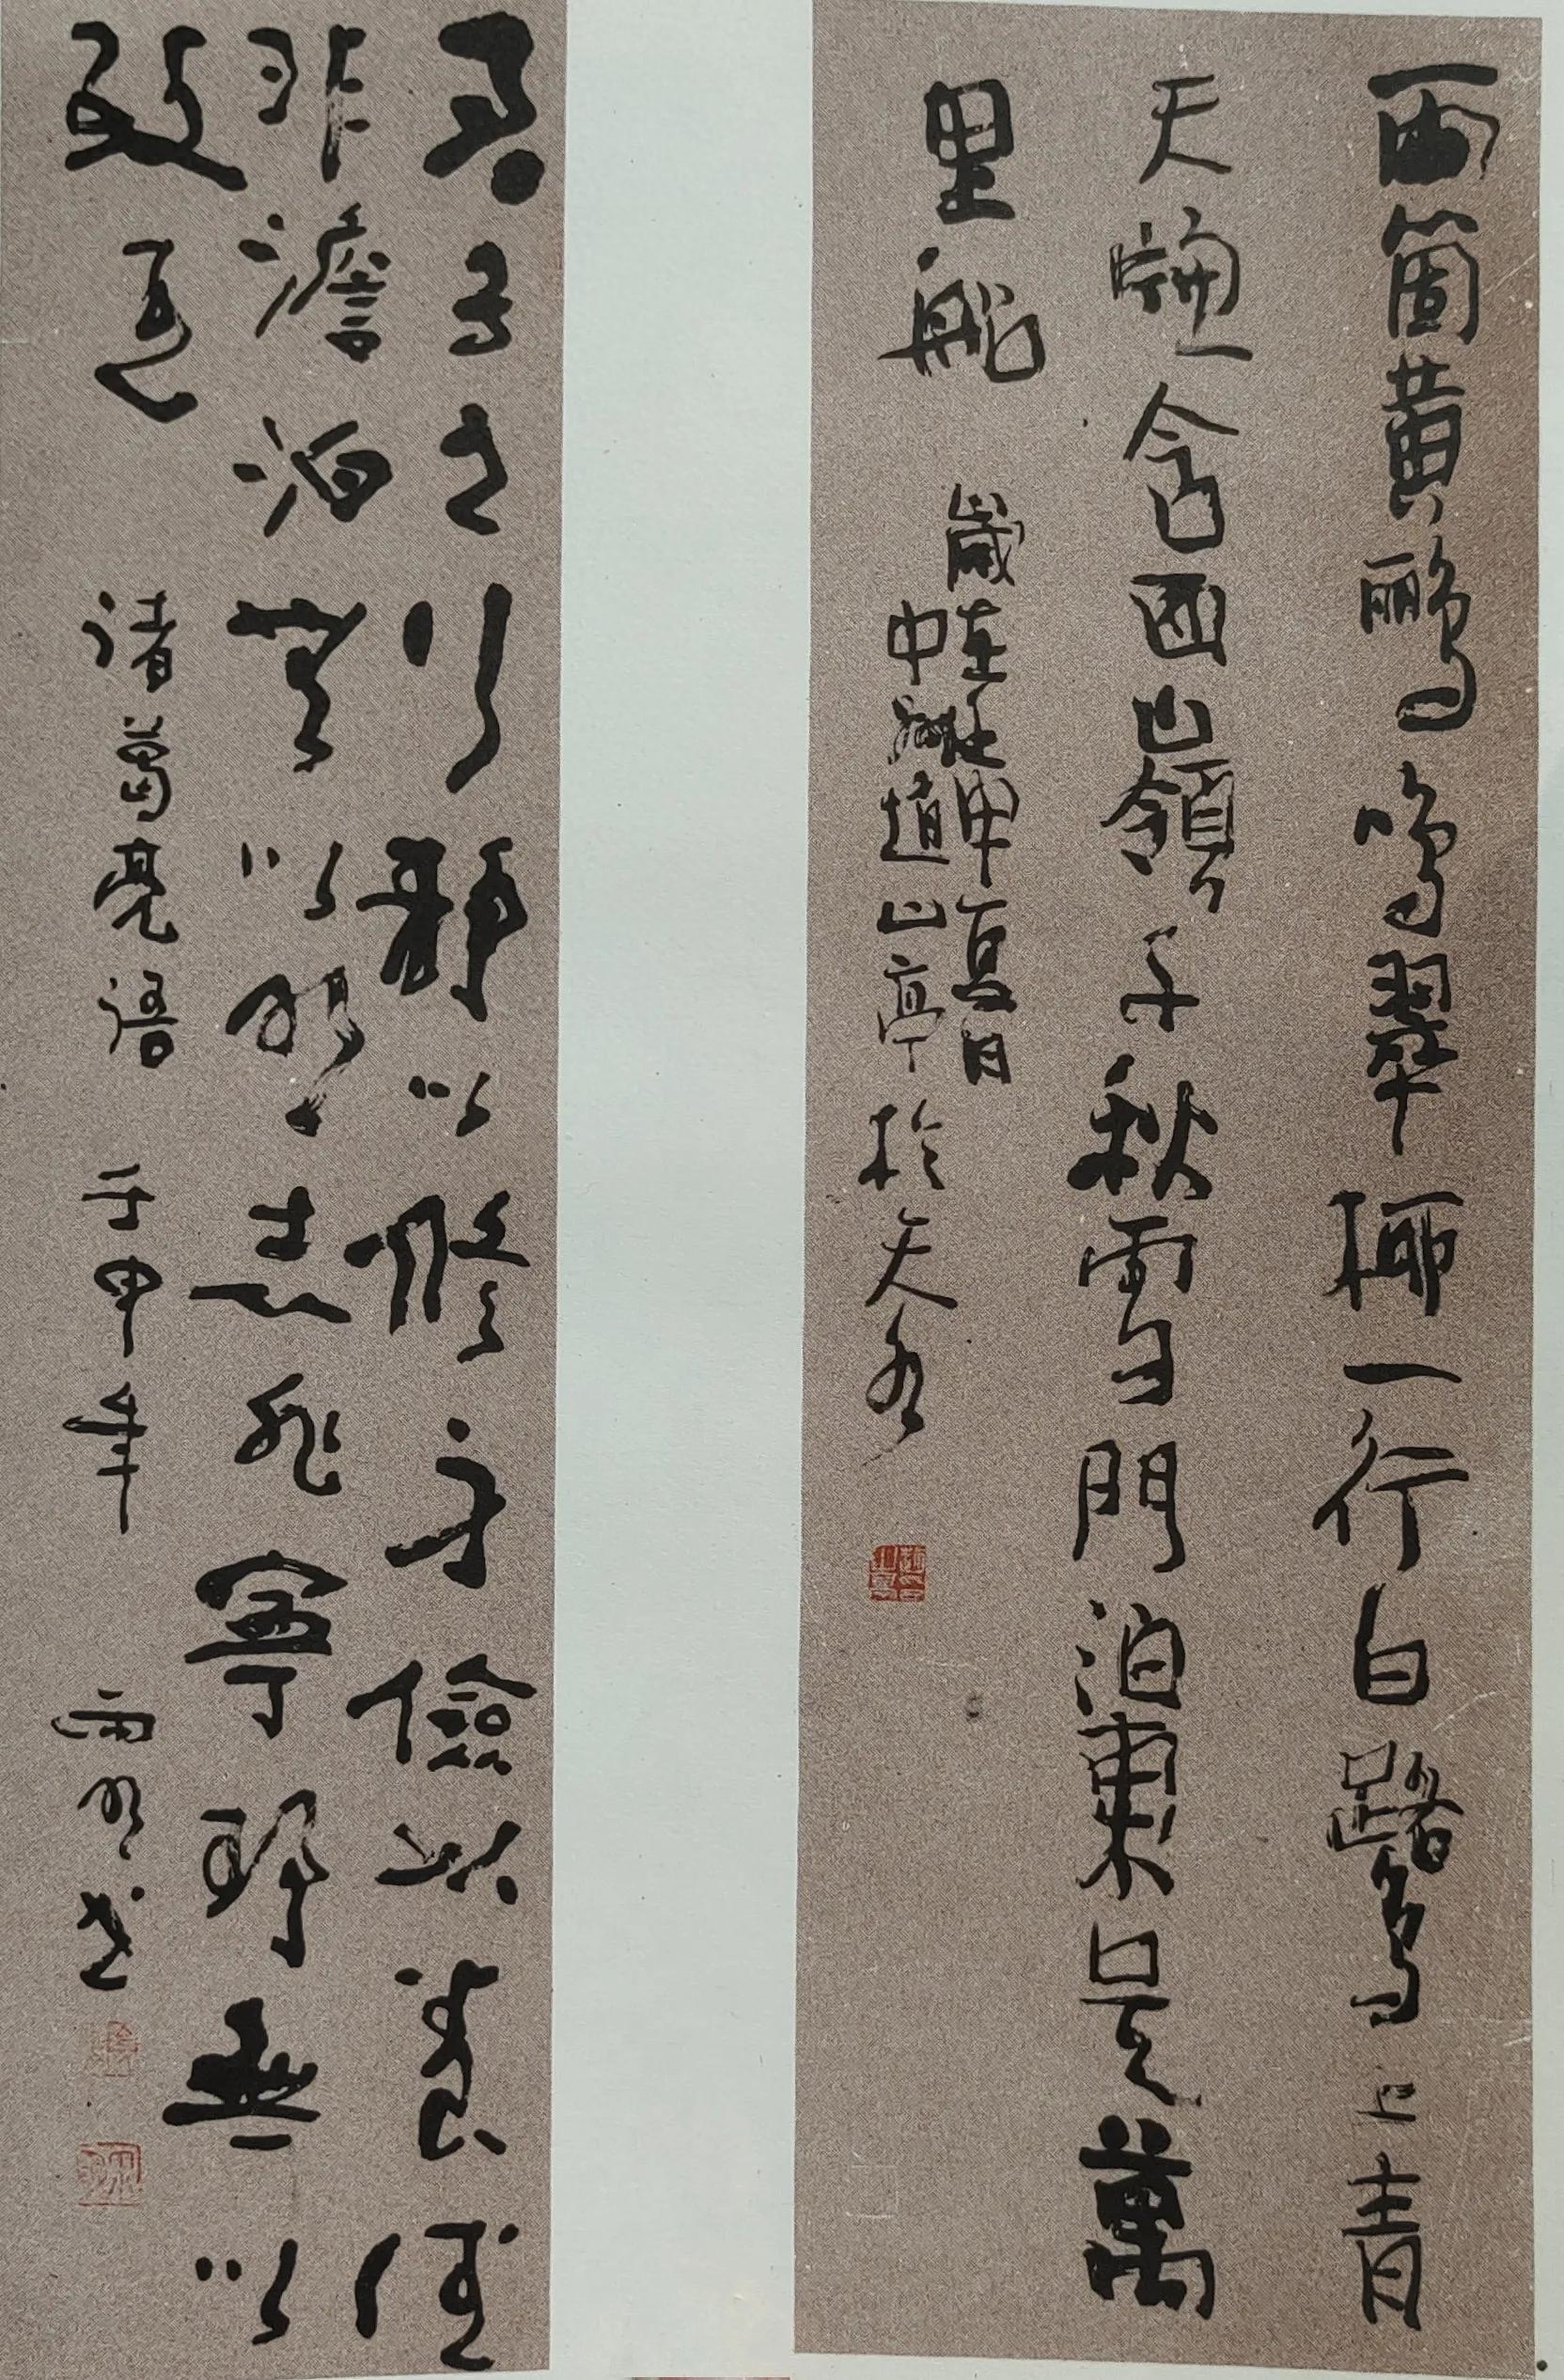 兩箇黃鸝鳴翠柳一行白鷺上青
天窗含西嶺千秋雪門泊東吳萬
里船
歲在壬申夏日
中州趙山亭於天
君子之行靜以修身儉以養德
非澹泊無以明志非寧靜無以
致遠 诸葛亮语 壬申年 书